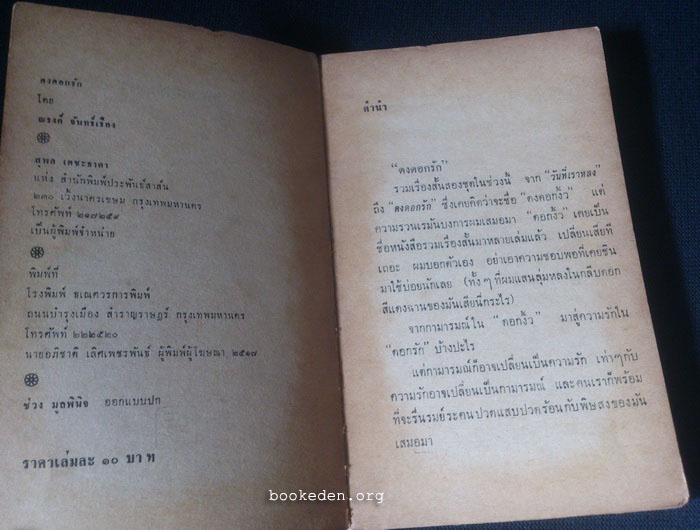 ดงดอกรัก
โดย
ณรงค์ จันทร์เรือง
สุพล เตชะธาดา
แห่ง สำนักพิมพ์ประพันธ์สาส์น
๒๓๐ เวิ้งนาครเขษม กรุงเทพมหานคร
โทรศัพท์ ๒๑๗๒๕๙
เป็นผู้พิมพ์จำหน่าย
พิมพ์ที่
โรงพิมพ์ ขเณศวรการพิมพ์
ถนนบำรุงเมือง สำราญราษฎร์ กรุงเทพมหานคร
โทรศัพท์ ๒๒๒๕๒๐
นายอภิชาติ เลิศเพชรพันธ์ ผู้พิมพ์ผู้โฆษณา ๒๕๑๗
ช่วง มูลพินิจ ออกแบบปก
ราคาเล่มละ ๑๐ บาท
คำนำ
“ดงดอกรัก”
รวมเรื่องสั้นสองชุดในช่วงนี้ จาก “วันที่เราหลง”
ถึง “ดงดอกรัก” ซึ่งเคยคิดว่าจะชื่อ “ดงดอกงิ้ว” แต่
ความรวนเรมันบงการผมเสมอมา “ดอกงิ้ว” เคยเป็น
ชื่อหนังสือรวมเรื่องสั้นมาหลายเล่มแล้ว เปลี่ยนเสียที
เถอะ ผมบอกตัวเอง อย่าเอาความชอบพอที่เคยชิน
มาใช้บ่อยนักเลย (ทั้งๆ ที่ผมแสนลุ่มหลงในกลีบดอก
สีแดงฉานของมันเสียนี่กระไร)
จากกามารมณ์ใน “ดอกงิ้ว” มาสู่ความรักใน
“ดอกรัก” บ้างปะไร
แต่กามารมณ์ก็อาจเปลี่ยนเป็นความรัก เท่าๆกับ
ความรักอาจเปลี่ยนเป็นกามารมณ์ และคนเราก็พร้อม
ที่จะรื่นรมย์ระคนปวดแสบปวดร้อนกับพิษสงของมัน
เสมอมา
bookeden.org